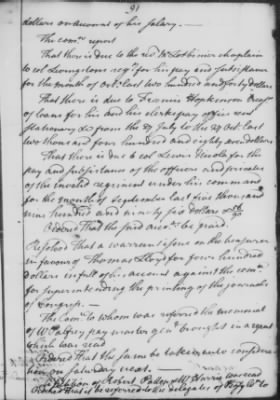 91
dollars on account of his salary.—
The com.ee report
That there is due to the rev.d M.r Lotbinier chaplain
to col Livingstons reg.t for his pay and subsistance
for the month of Oct.r last two hundred and forty dollars
That there is due to Francis Hopkinson treas.r
of loans for his and his clerks pay office rent
stationary &c from the 27 July to the 27 Oct.r last
two thousand four hundred and eighty dollars
That there is due to col Lewis Nicola for the
pay and subsistance of the officers and privates
of the invalid regiment under his command
for the month of September last five thousand
nine hundred and ninety six dollars
Ordered That the said acc.ts be paid.
Resolved That a warrant issue on the treasurer
in favour of Thomas Lloyd for four hundred
dollars in full of his account against the com.ee
for superintending the printing of the journals
of Congress.—
The Com.ee to whom was referred the memorial
of W Palfrey pay master gen.l brought in a report
which was read
Ordered That the same be taken into consideration
on Saturday next.—
A petition of Robert Patten & W.m Harris was read
Ordered That it be referred to the delegates of to